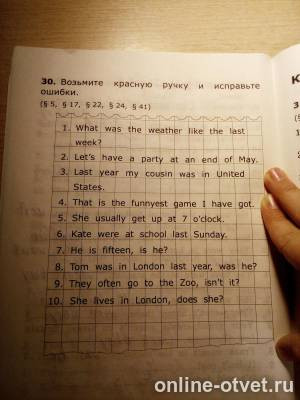 30. Возьмите красную ручку и исправьте
ошибки.
(§ 5, § 17, § 22, § 24, § 41)
1. What was the weather like the last
week?
2. Let's have a party at an end of May.
3. Last year my cousin was in United
States.
4. That is the funnyest game I have got.
5. She usually get up at 7 o'clock.
6. Kate were at school last Sunday.
7. He is fifteen, is he?
8. Tom was in London last year, was he?
9. They often go to the Zoo, isn't it?
10. She lives in London, does she?
online-otvet.ru